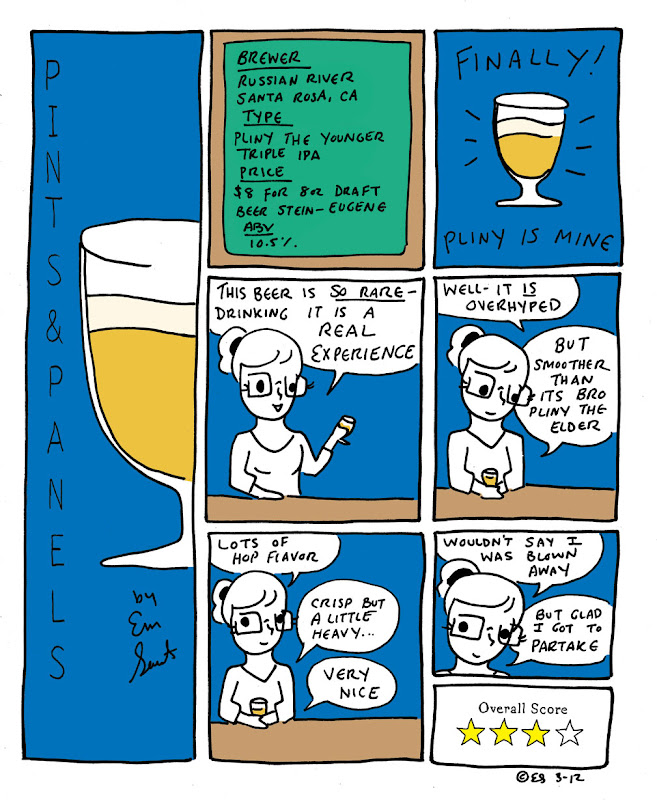 PINTS & PANELS
by
Em
BREWER
RUSSIAN RIVER
SANTA ROSA, CA
TYPE
PLINY THE YOUNGER
TRIPLE IPA
PRICE
$8 FOR 8oz DRAFT
BEER STEIN - EUGENE
ABV
10.5%
FINALLY!
PLINY IS MINE
THIS BEER IS SO RARE -
DRINKING IT IS A
REAL
EXPERIENCE
WELL - IT IS
OVERHYPED
BUT
SMOOTHER
THAN
ITS BRO
PLINY THE
ELDER
LOTS OF
HOP FLAVOR
CRISP BUT
A LITTLE
HEAVY...
VERY
NICE
WOULDN'T SAY I
WAS BLOWN
AWAY
BUT GLAD
I GOT TO
PARTAKE
Overall Score
©ES 3-12